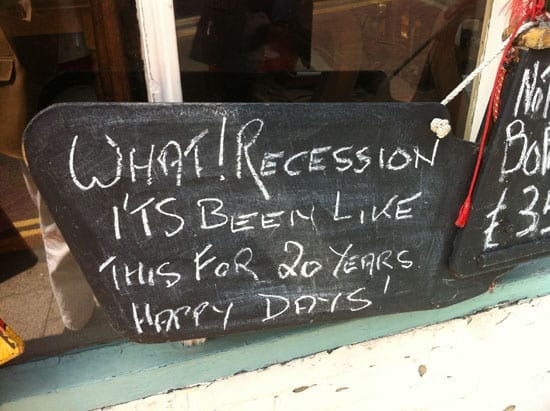 WHAT! RECESSION
I'TS BEEN LIKE
THIS FOR 20 YEARS
HAPPY DAYS!
£35